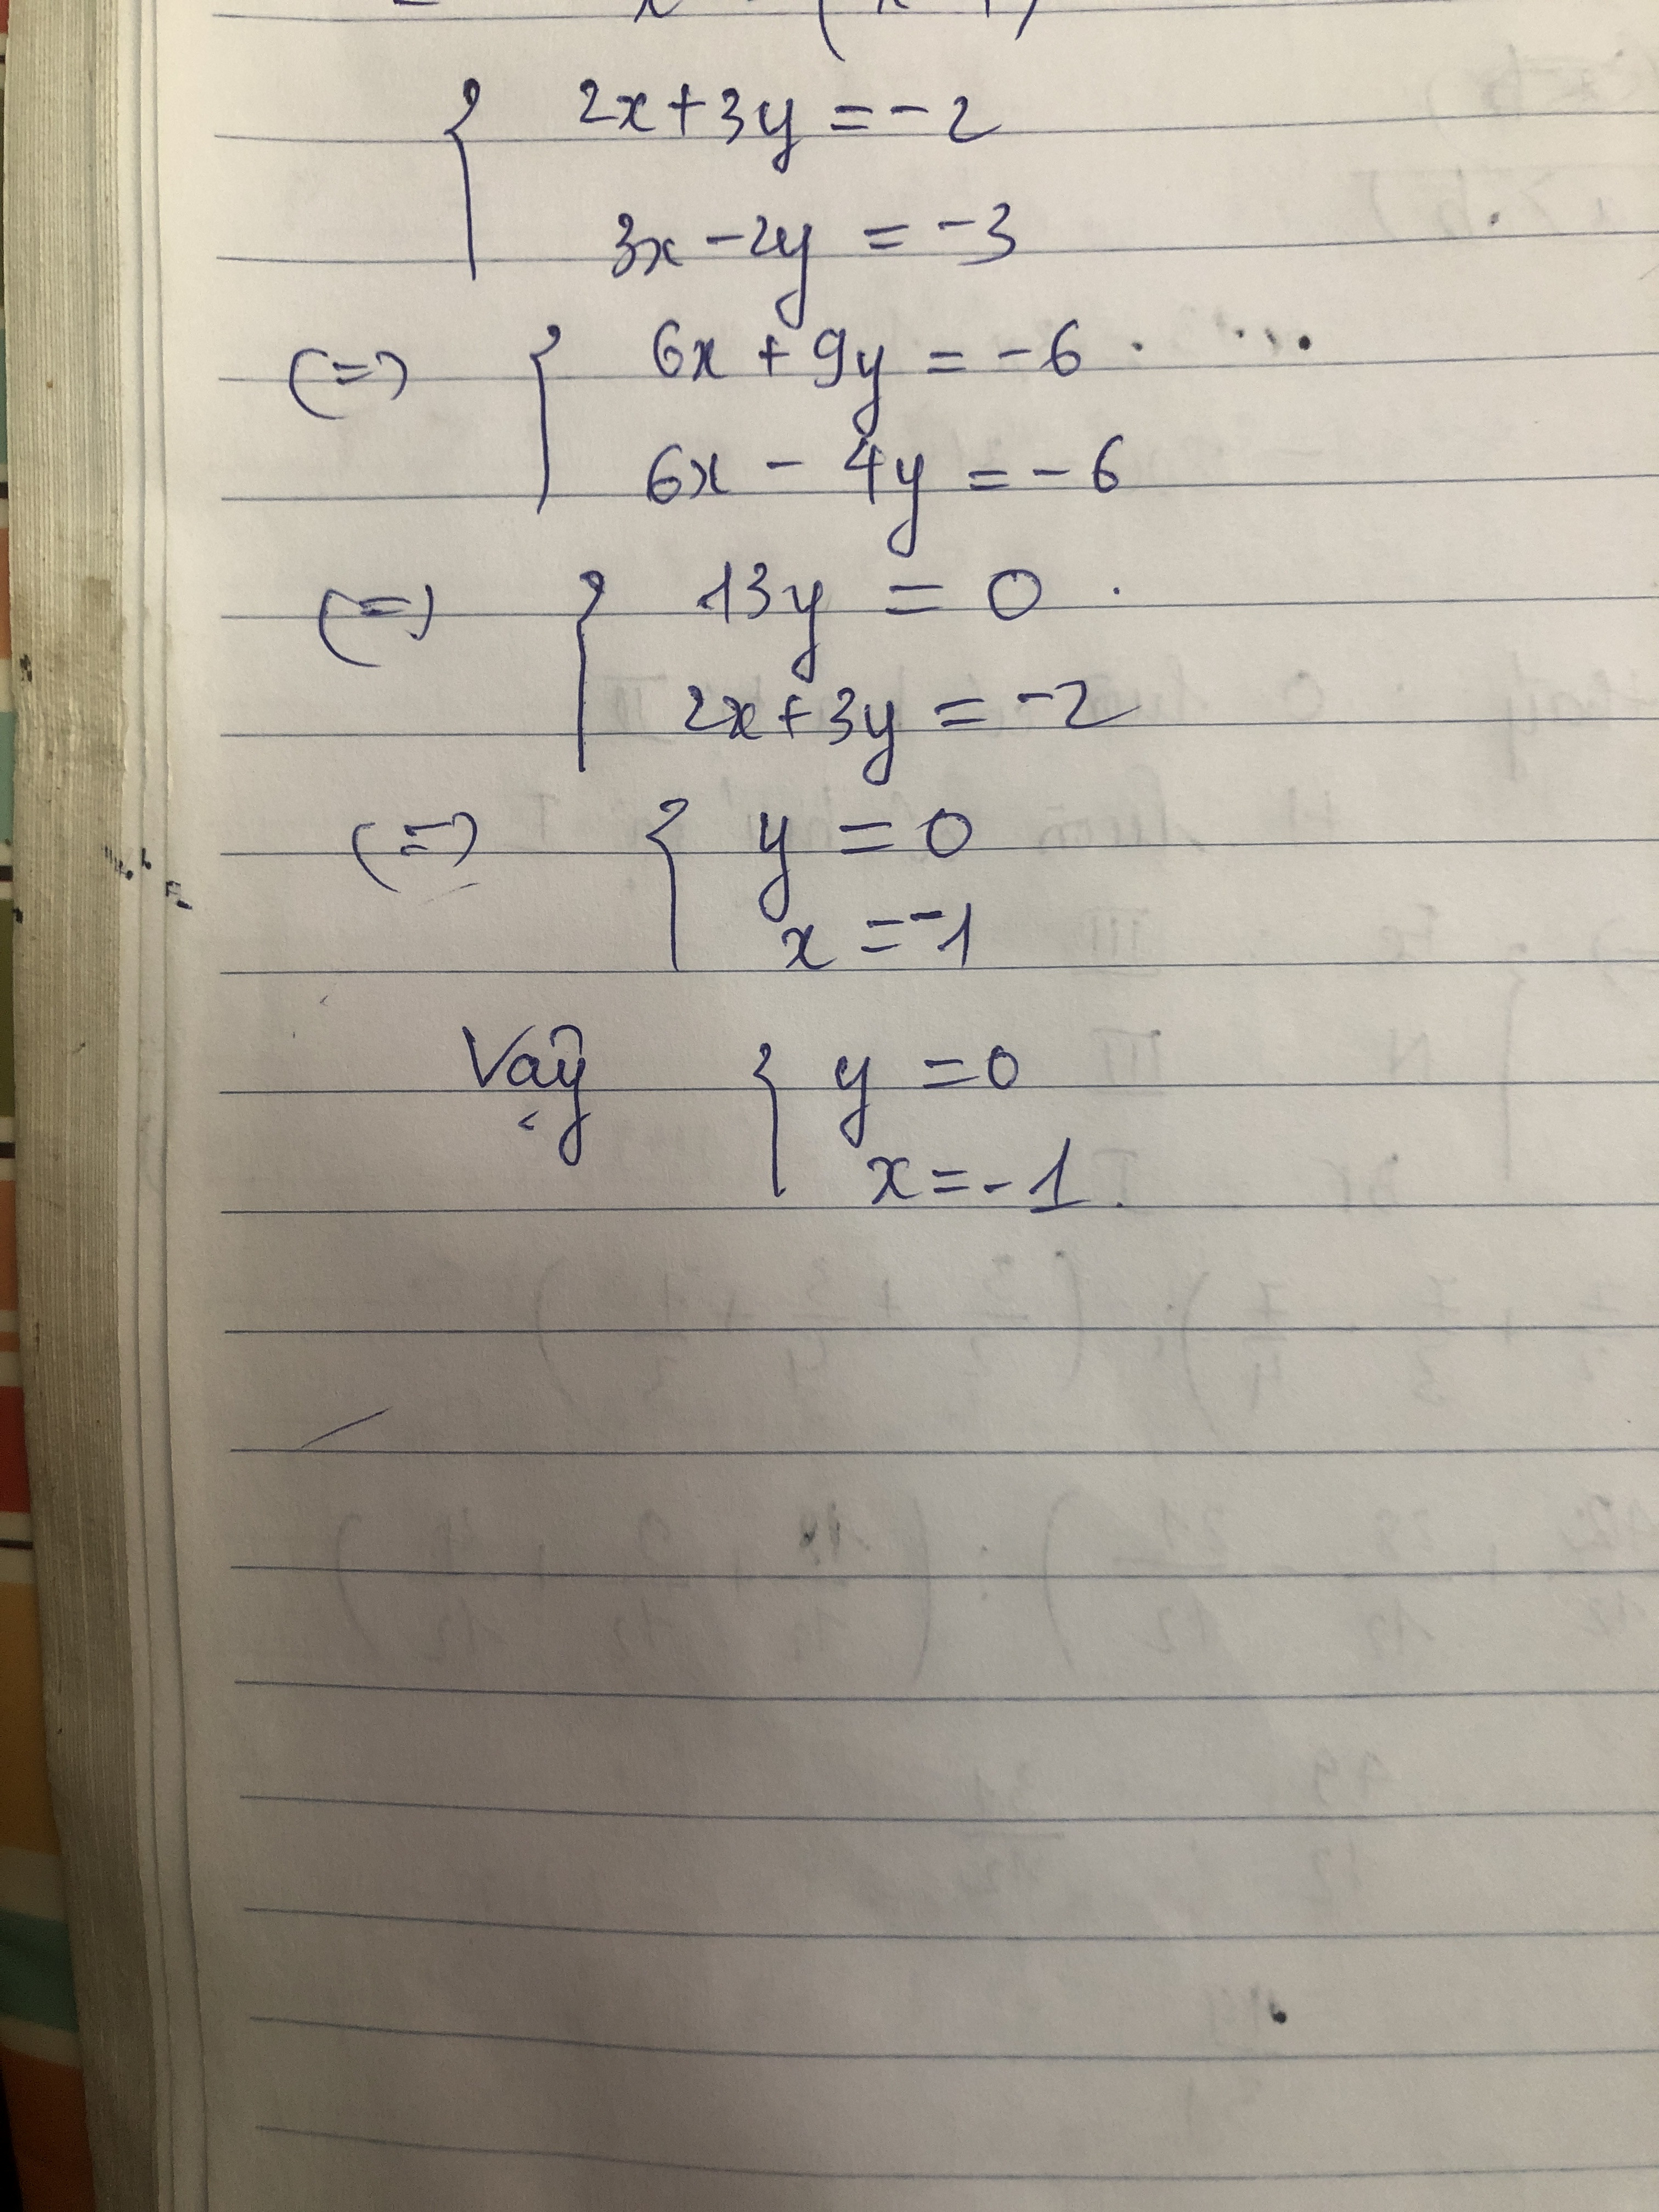 { 2x + 3y = -2
3x - 2y = -3
(=) { 6x + 9y = -6
6x - 4y = -6
(=) { 13y = 0
2x + 3y = -2
(=) { y = 0
x = -1
Vậy { y = 0
x = -1.